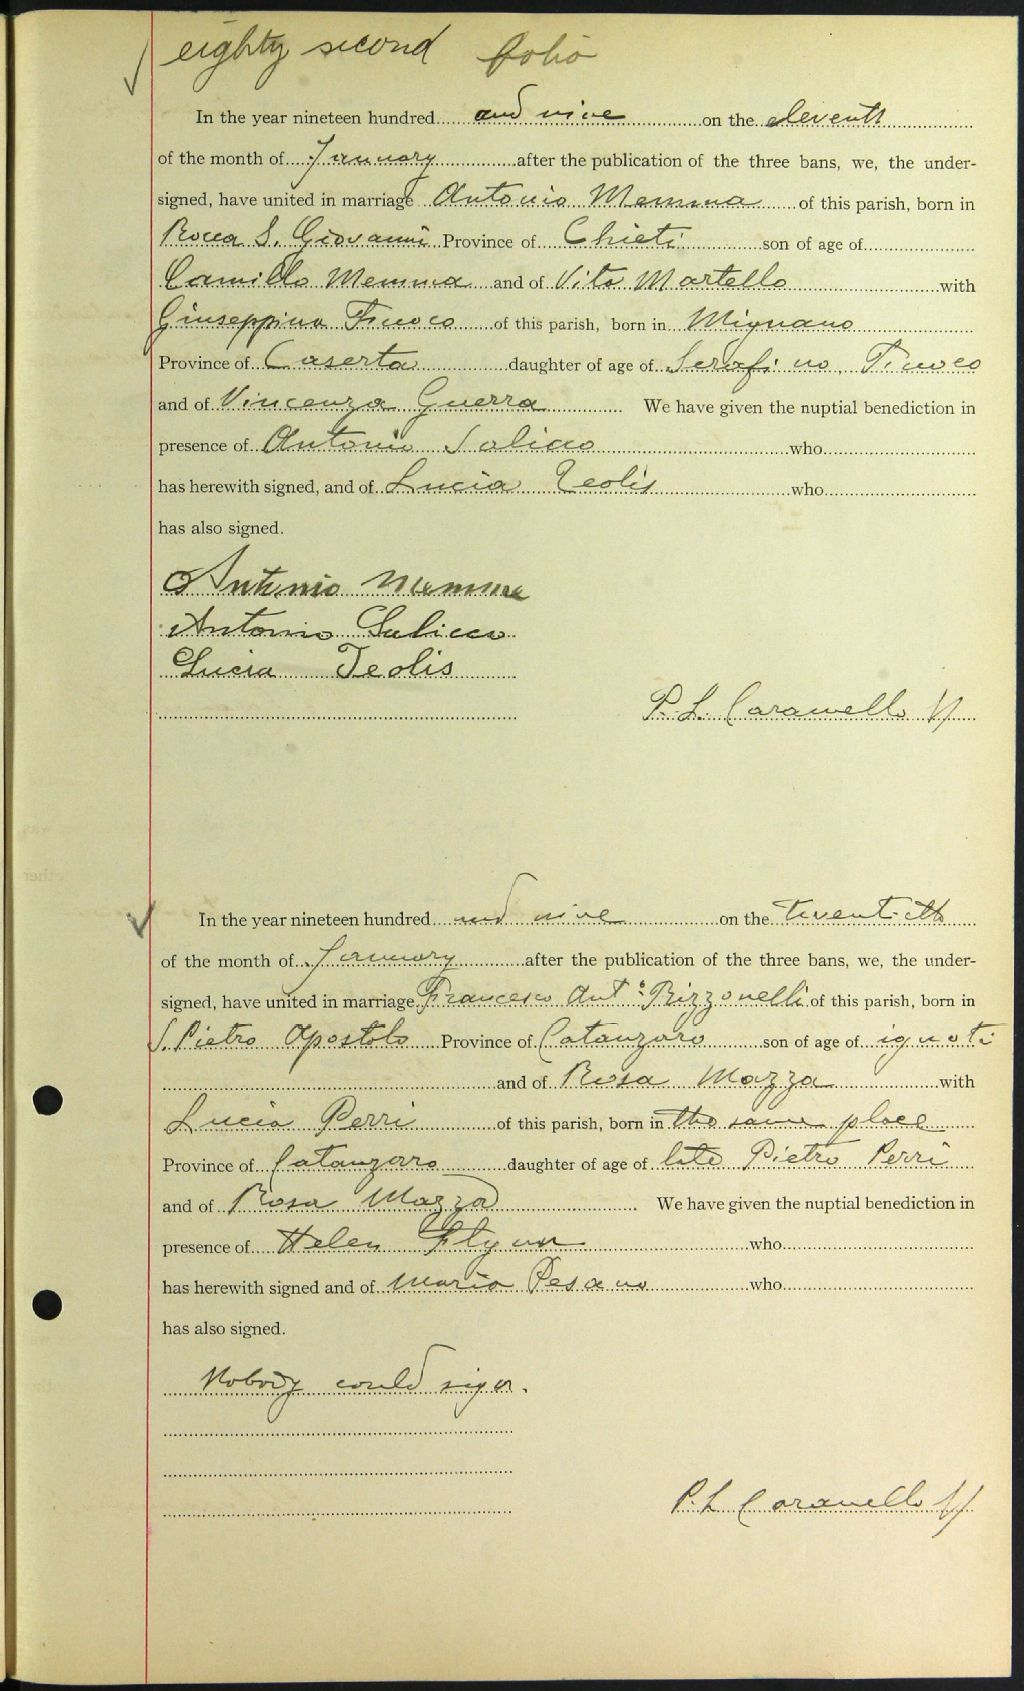 eighty second folio
In the year nineteen hundred and nine on the eleventh
of the month of January after the publication of the three bans, we, the under-
signed, have united in marriage Antonio Memma of this parish, born in
Rocca S. Giovanni Province of Chieti son of age of
Camillo Memma and of Vita Martello with
Giuseppina Fuoco of this parish, born in Mignano
Province of Caserta daughter of age of Serafino Fuoco
and of Vincenza Guerra We have given the nuptial benediction in
presence of Antonio Salicco who
has herewith signed, and of Lucia Teolis who
has also signed.
Antonio Memma
Antonio Salicco
Lucia Teolis
P. L. Caramello
In the year nineteen hundred and nine on the twentieth
of the month of January after the publication of the three bans, we, the under-
signed, have united in marriage Francesco Ant.º Rizzonelli of this parish, born in
S. Pietro Apostolo Province of Catanzaro son of age of ignoti
and of Rosa Mazza with
Lucia Perri of this parish, born in the same place
Province of Catanzaro daughter of age of late Pietro Perri
and of Rosa Mazza We have given the nuptial benediction in
presence of Helen Flynn who
has herewith signed and of Maria Pesano who
has also signed.
Nobody could sign.
P. L. Caramello